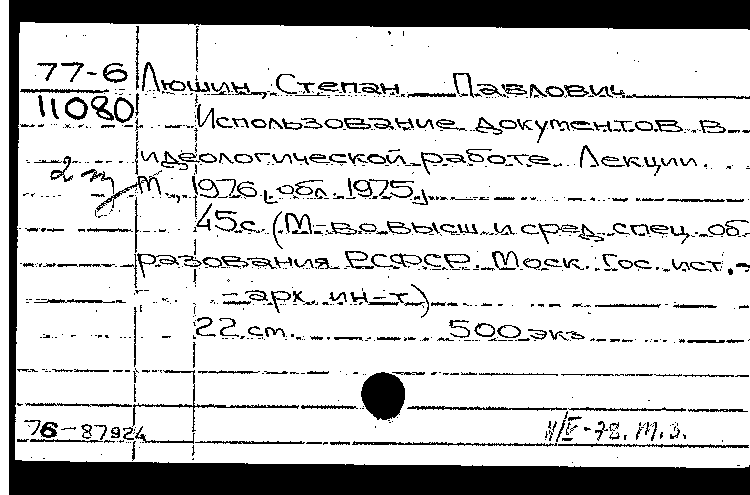 77-6 Люшин, Степан Павлович.
11080 Использование документов в
идеологической работе. Лекции.
2 М., 1976, [обл. 1975]
45с. (М-во высш и сред. спец. об
разования РСФСР. Моск. гос. ист.-
-арк. ин-т)
22 ст. 500 экз
76-87924 /IV-78. М.З.